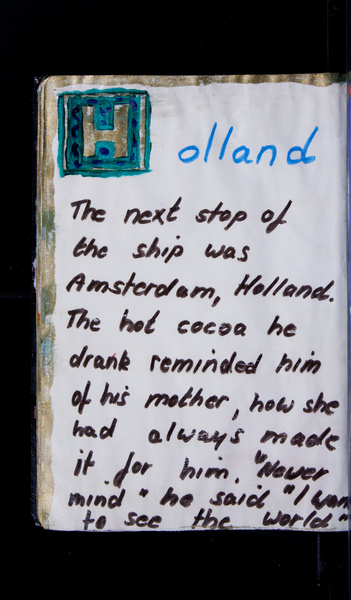 Holland
The next stop of
the ship was
Amsterdam, Holland.
The hot cocoa he
drank reminded him
of his mother, how she
had always made
it for him. "Never
mind" he said "I wan
to see the world"